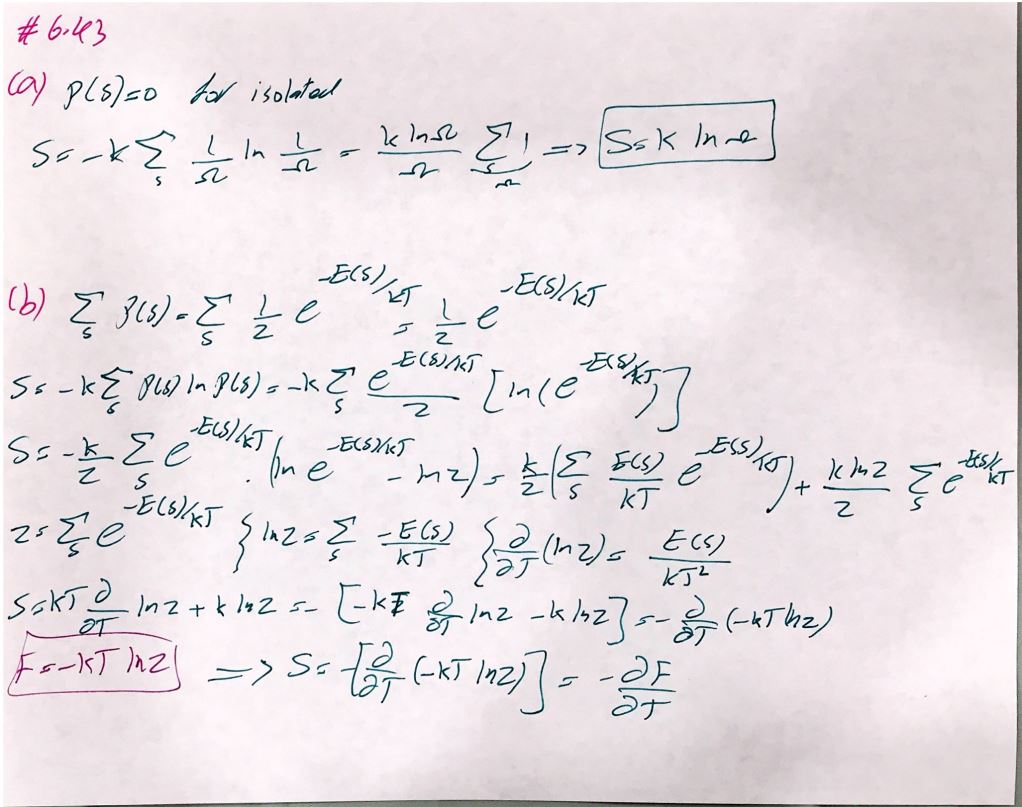 #6.43
(a) P(s)=0 for isolated
S = -k Σ_s 1/Ω ln 1/Ω = k lnΩ/Ω Σ_s 1 (Ω) => S=k lnΩ
(b) Σ_s P(s) = Σ_s 1/Z e^{-E(s)/kT} = 1/Z e^{-E(s)/kT}
S = -k Σ_s P(s) ln P(s) = -k Σ_s e^{-E(s)/kT}/Z [ln(e^{-E(s)/kT})]
S = -k/Z Σ_s e^{-E(s)/kT} · (ln e^{-E(s)/kT} - ln Z) = k/Z (Σ_s E(s)/kT e^{-E(s)/kT}) + k ln Z/Z Σ_s e^{-E(s)/kT}
Z = Σ_s e^{-E(s)/kT} } ln Z = Σ_s -E(s)/kT } ∂/∂T (ln Z) = E(s)/kT²
S = kT ∂/∂T ln Z + k ln Z = -[-kT ∂/∂T ln Z - k ln Z] = -∂/∂T (-kT ln Z)
F = -kT ln Z => S = -[∂/∂T (-kT ln Z)] = -∂F/∂T